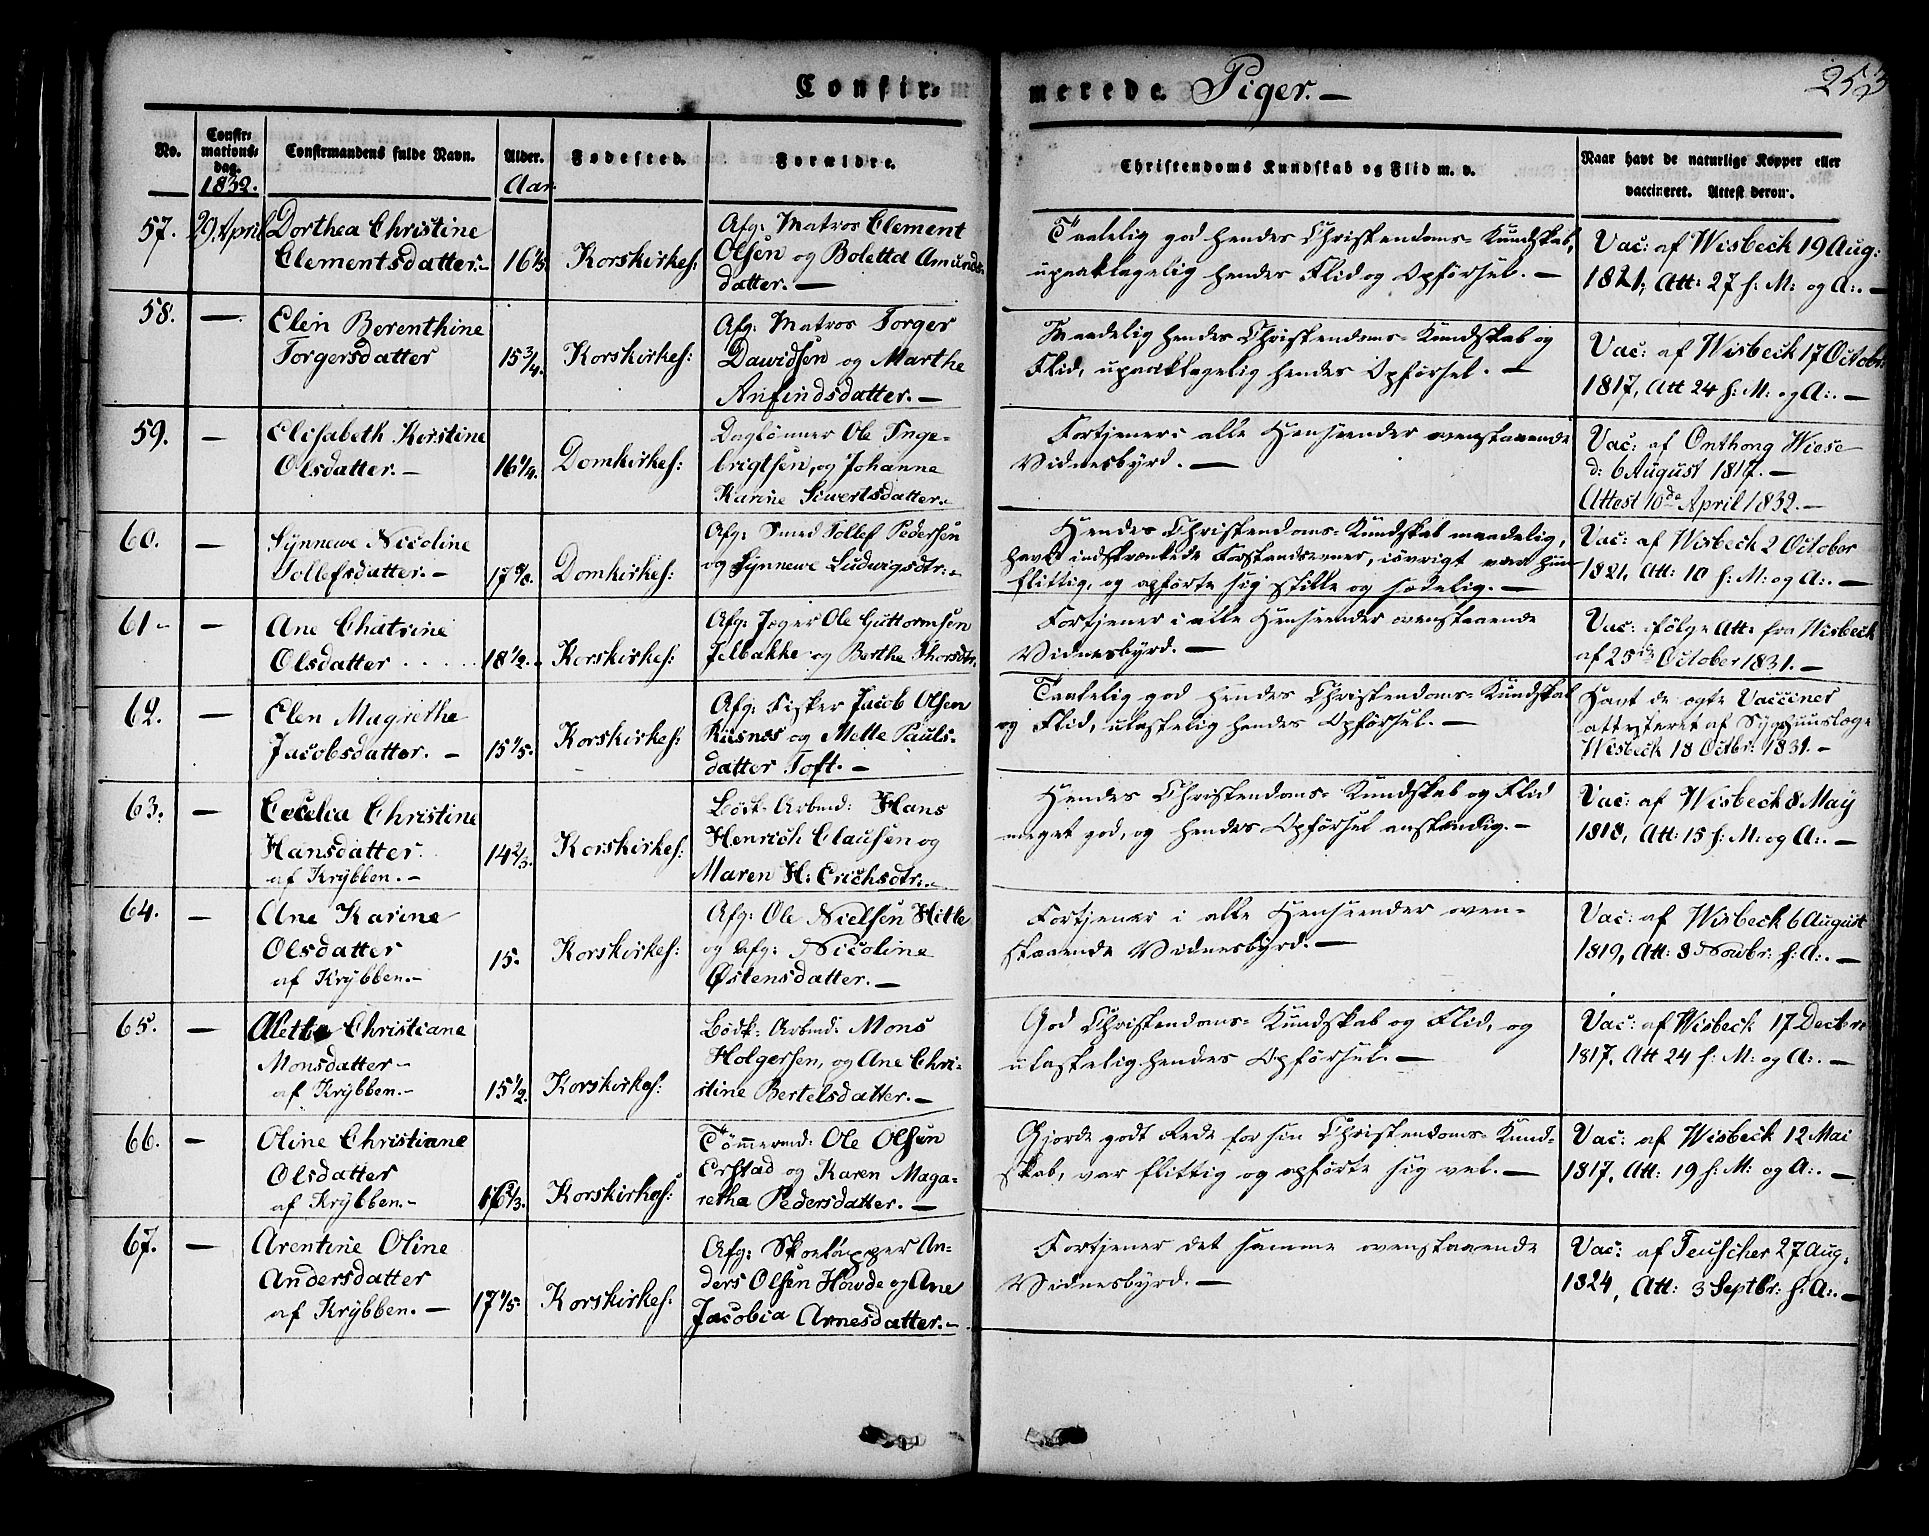 Confirmerede Piger.—
253
No.
Confirmations-dag.
1832.
Confirmandens fulde Navn.
Alder.
Aar.
Fødested.
Forældre.
Christendoms Kundskab og Flid m. v.
Naar havt de naturlige Kopper eller
vaccineret. Attest derom.
57. 29. April Dorthea Christine
Clementsdatter.- 16 1/3. Korskirkes:
Afg: Matros Clement
Olsen og Boletta Amunds-
datter. —
Taalelig god hendes Christendoms- Kundskab,
upaaklagelig hendes Flid og Opførsel. —
Vac: af Wisbeck 19 Aug:
1821, Att: 27 s: M: og A:. —
58. — Elen Berenthine
Torgersdatter 15 3/4. Korskirkes:
Afg: Matros Torger
Davidsen og Marthe
Anfindsdatter. —
Maadelig hendes Christendoms- Kundskab og
Flid, upaaklagelig hendes Opførsel. —
Vac: af Wisbeck 17 Octobr:
1817, Att 24 s: M: og A:. —
59. — Elisabeth Kerstine
Olsdatter. — 16 1/4. Domkirkes:
Daglønner Ole Inge-
brigtsen, og Johanne
Karine Siwertsdatter.-
Fortjener i alle Henseender ovenstaaende
Vidnesbyrd. —
Vac: af Onthong Wiese
d: 6 August 1817. —
Attest 10de April 1832. —
60. — Synnewe Nicoline
Tollefsdatter. — 17 Domkirkes:
Afg: Smed Tollef Pedersen
og Synnewe Ludwigsdtr:-
Hendes Christendoms- Kundskab maadelig,
havde indskrænkede Forstandsevner, iøvrigt var hun
flittig, og opførte sig stille og sædelig. —
Vac: af Wisbeck 2 October
1821, Att: 10 s: M: og A:. —
61 — Ane Chatrine
Olsdatter . . . . . 18 1/2. Korskirkes:
Afg: Jæger Ole Guttormsen
Jelbakke og Berthe Thorsdtr.
Fortjener i alle Henseender ovenstaaende
Vidnesbyrd. —
Vac: ifølge Att: fra Wisbeck
af 25de October 1831. —
62. — Elen Magrethe
Jacobsdatter. — 15 1/5. Korskirkes:
Afg: Fisker Jacob Olsen
Risnes og Mette Pauls-
datter Toft. —
Taalelig god hendes Christendoms- Kundskab
og Flid, ulastelig hendes Opførsel. —
Havt de ægte Vacciner
attesteret af Sygehuuslæge
Wisbeck 18 Octbr: 1831. —
63. — Cecelia Christine
Hansdatter.
af Krybben. — 14 2/3. Korskirkes:
Bødk. Arbmd: Hans
Henrich Clausen og
Maren H: Erichsdtr:-
Hendes Christendoms- Kundskab og Flid
meget god, og hendes Opførsel anstændig. —
Vac: af Wisbeck 8 May
1818, Att: 15 s: M: og A:. —
64. — Ane Karine
Olsdatter
af Krybben. — 15. Korskirkes:
Afg: Ole Nielsen Hitle
og Afg: Nicoline
Østensdatter. —
Fortjener i alle Henseender oven-
staaende Vidnesbyrd. —
Vac: af Wisbeck 6 August
1819, Att: 8 Novbr: s: A:. —
65. — Aletta Christiane
Monsdatter —
af Krybben. — 15 1/2. Korskirkes:
Bødk: Arbmd: Mons
Holgersen, og Ane Chri-
stine Bertelsdatter. —
God Christendoms- Kundskab og Flid, og
ulastelig hendes Opførsel. —
Vac: af Wisbeck 17 Decbr:
1817, Att 24 s: M: og A:. —
66. — Oline Christiane
Olsdatter
af Krybben. — 16 1/3. Korskirkes:
Tømmermd: Ole Olsen
Erstad og Karen Maga-
retha Pedersdatter. —
Gjorde godt Rede for sin Christendoms- Kund-
skab, var flittig og opførte sig vel. —
Vac: af Wisbeck 12 Mai
1817, Att: 19 s: M: og A:. —
67. — Arentine Oline
Andersdatter
af Krybben. — 17 1/5. Korskirkes:
Afg: Skoeløpper An-
ders Olsen Howde og Ane
Jacobia Arnesdatter. —
Fortjener det samme ovenstaaende
Vidnesbyrd. —
Vac: af Teuscher 27 Aug:
1824, Att: 3 Septbr: s: A:. —